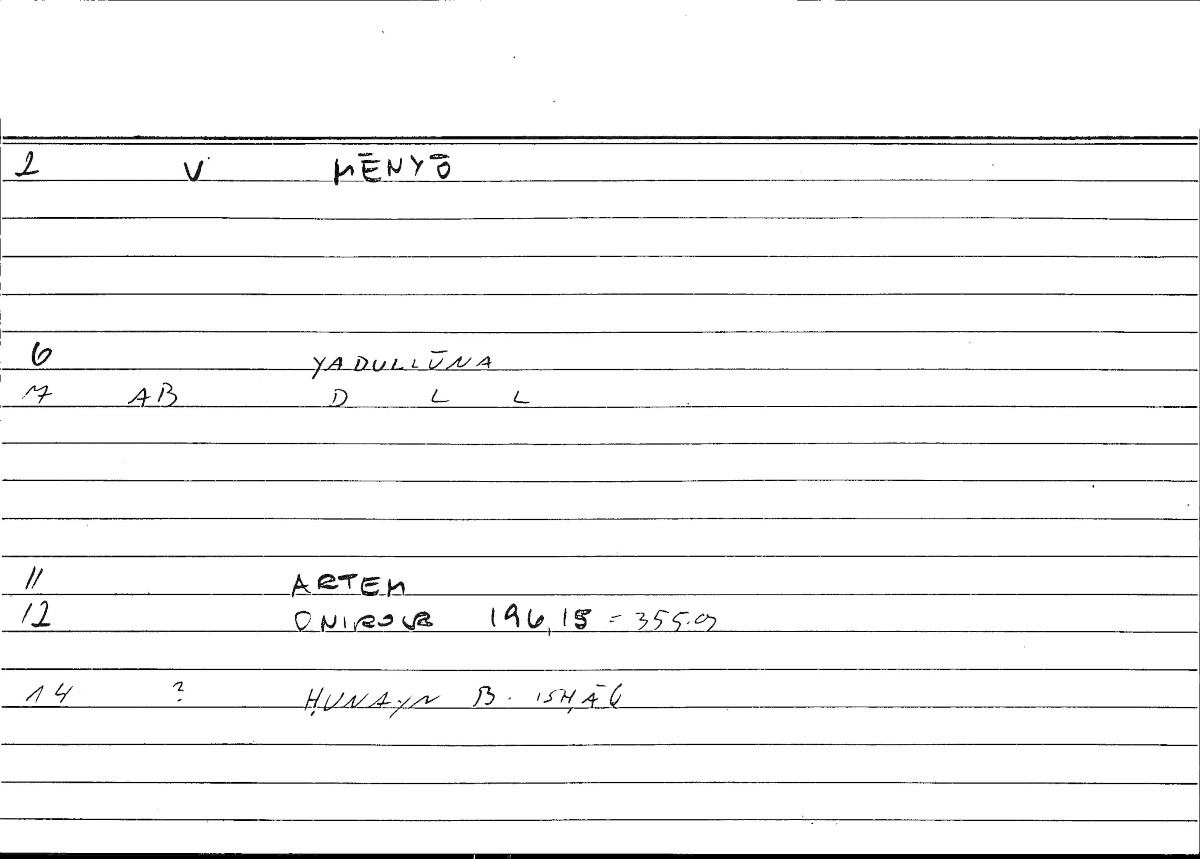 1 V MĒNYŌ
6 YADULLŪNA
7 AB D L L
11 ARTEM
12 ONIROCR 196,15 = 355.9
14 ? ḤUNAYN B. ISḤĀQ